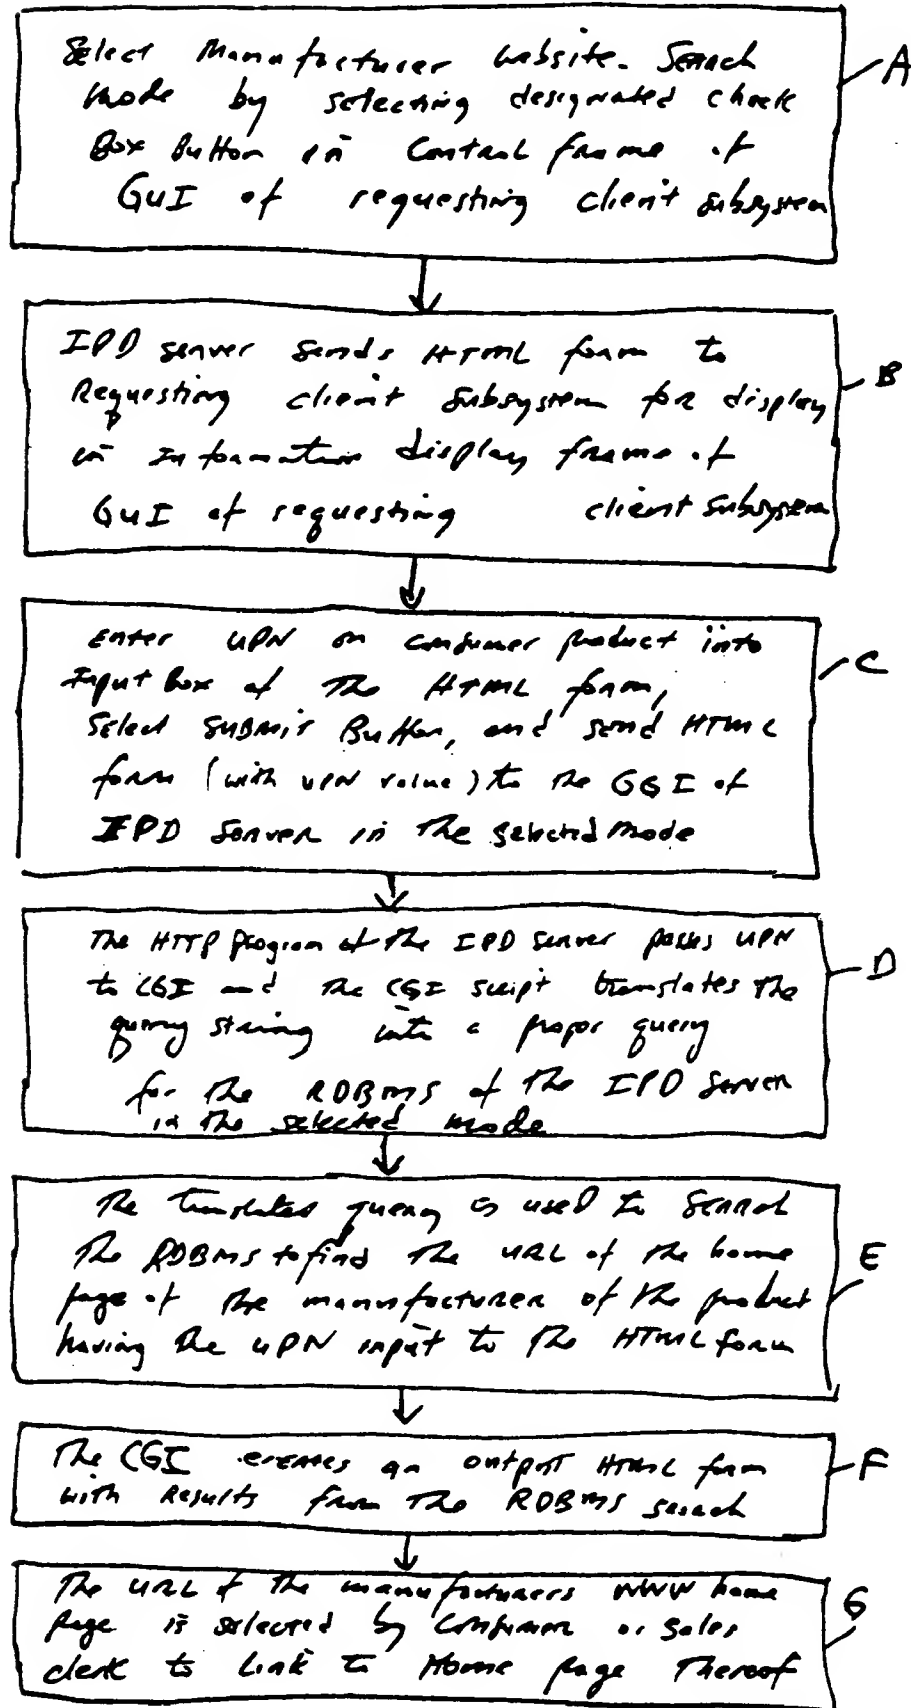 Select Manufacturer Website. Search
Mode by selecting designated check
Box Button in Control frame of
GUI of requesting client subsystem
A
IPD server sends HTML form to
Requesting client Subsystem for display
in Information display frame of
GUI of requesting client subsystem
B
Enter UPN on consumer product into
Input Box of The HTML form,
Select SUBMIT Button, and send HTML
form (with UPN value) to the CGI of
IPD Server in The selected mode
C
The HTTP program of the IPD Server passes UPN
to CGI and the CGI script translates the
query string into a proper query
for the RDBMS of the IPD Server
in the selected mode
D
The translates query is used to Search
The RDBMS to find The URL of the home
page of the manufacturer of the product
having the UPN input to The HTML form
E
The CGI creates an output HTML form
with Results from The RDBMS search
F
The URL of The manufacturers WWW home
Page is selected by Consumer or Sales
clerk to Link to Home page Thereof
G